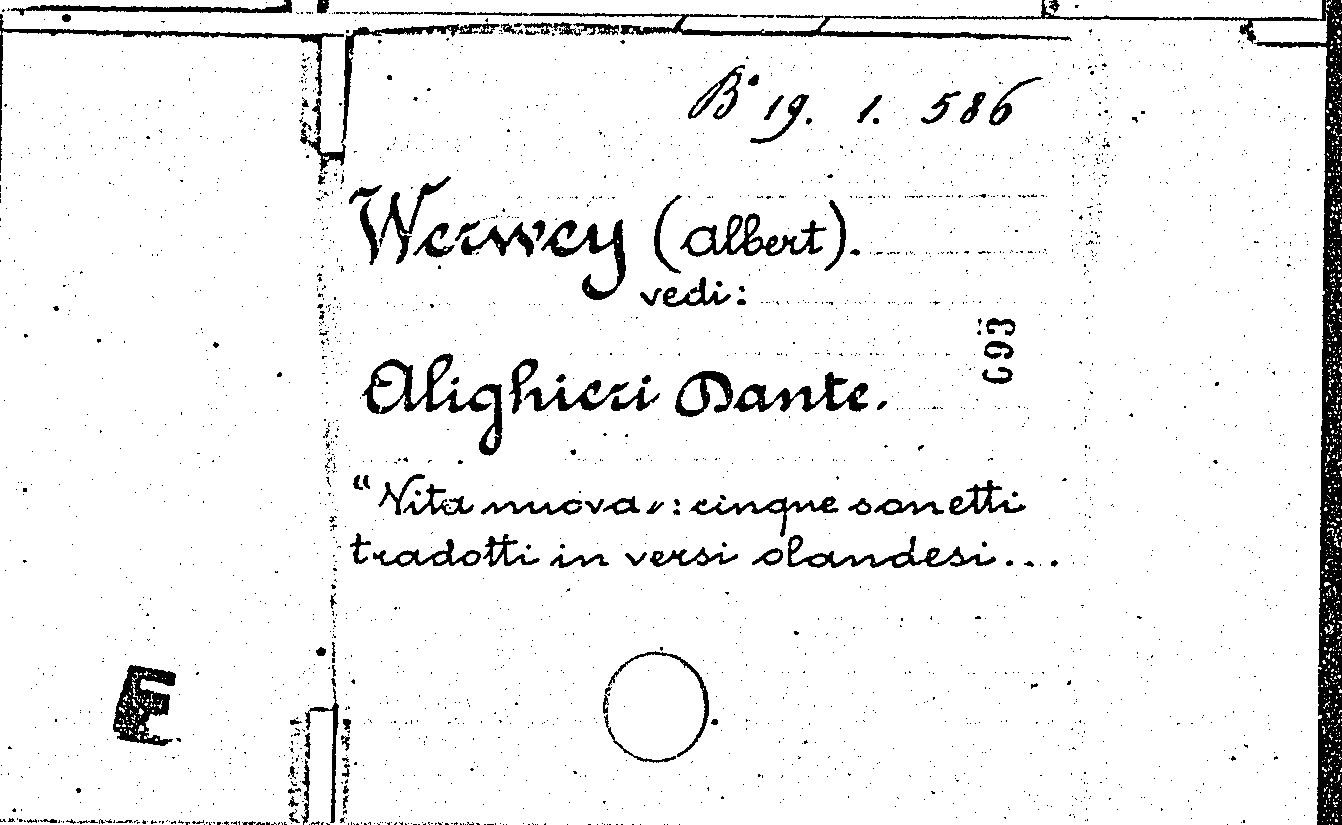 B° 19. 1. 586
Werwey (Albert).
vedi:
693
Alighieri Dante.
"Vita nuova„: cinque sonetti
tradotti in versi olandesi...
E